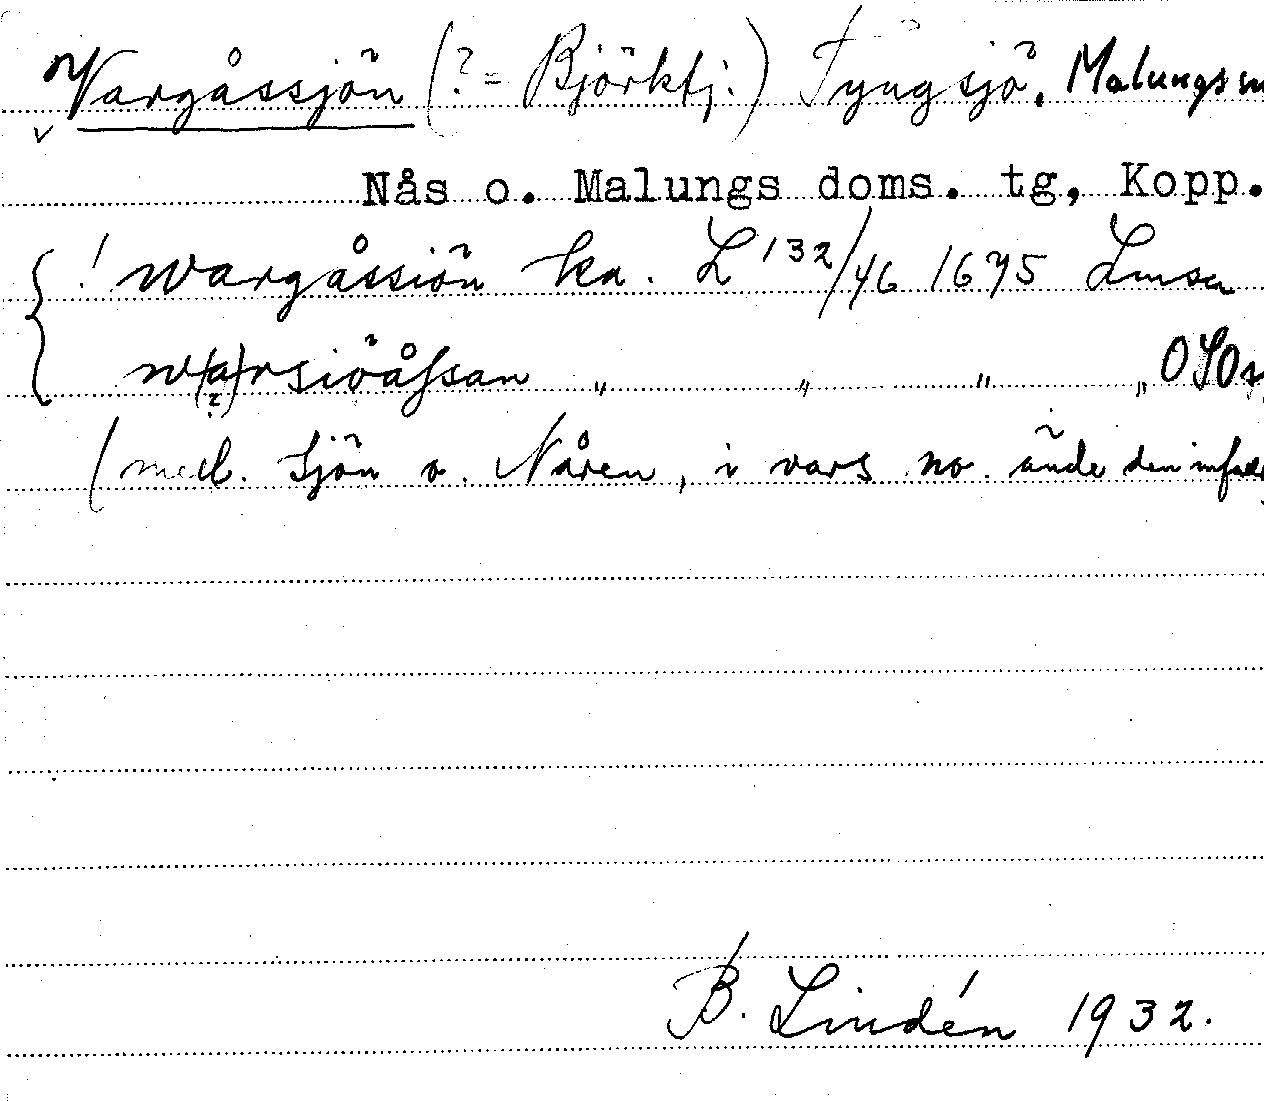 Vargåssjön (? = Björktj.) Tyngsjö, Malungs
Nås o. Malungs doms. tg, Kopp.
! wargåssiön ka. L 132/46 1675
w(a)rsiöåssan " " " "
(med. Sjön o. Nåren, i vars no. ände den
B. Lindén 1932.